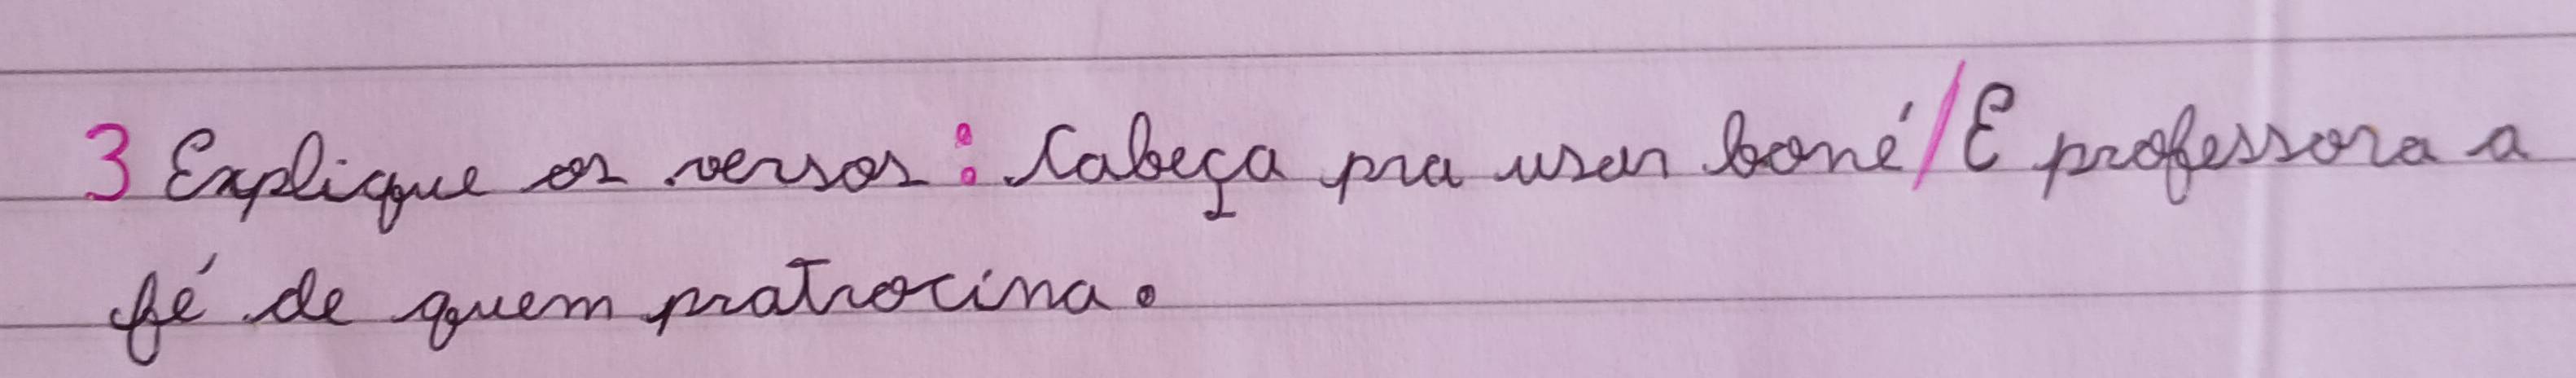 3 Explique os versos: Cabeça pra usar boné/E professora a
fé de quem patrocina.